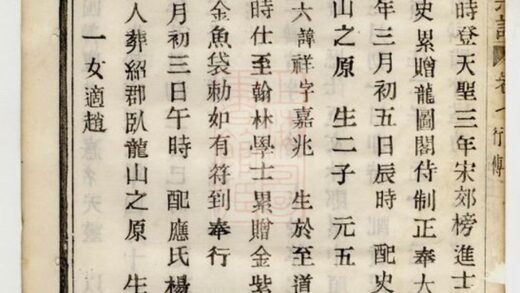 行傳
時登天聖三年宋郊榜進士
史累贈龍圖閣侍制正奉大
年三月初五日辰時 配史
山之原 生二子 元五
六諱祥字嘉兆 生於至道
時仕至翰林學士累贈金紫
金魚袋勅如有符到奉行
月初三日午時 配應氏楊
人葬紹郡臥龍山之原 生
一女適趙